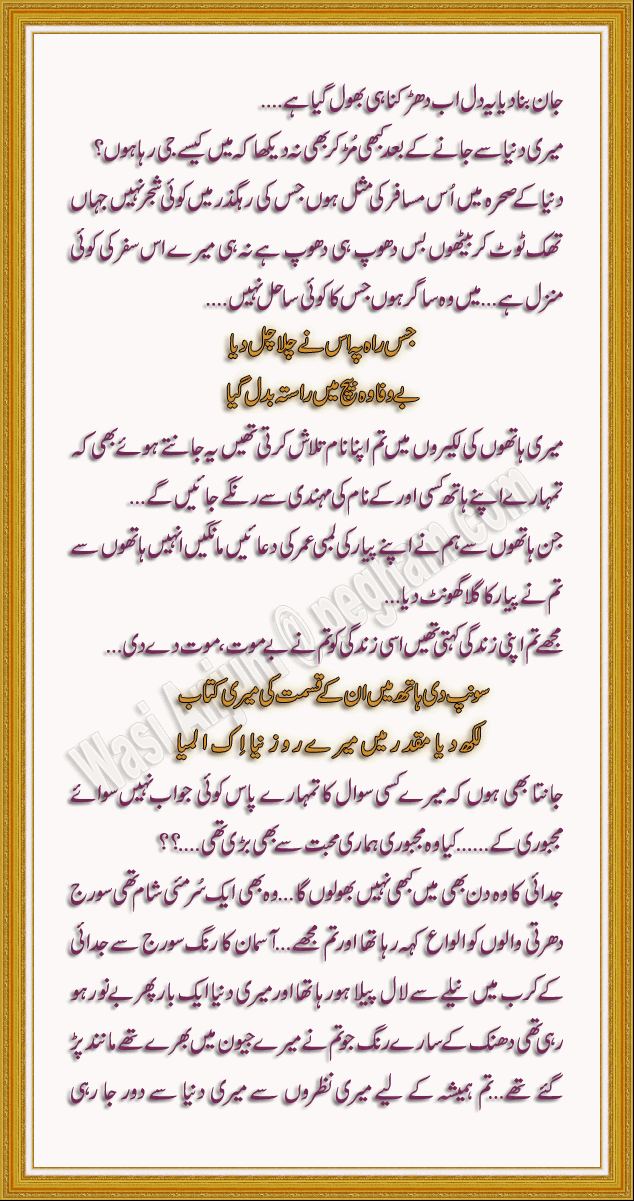 جان بنا دیا یہ دل اب دھڑکنا ہی بھول گیا ہے....
میری دنیا سے جانے کے بعد کبھی مُڑ کر بھی نہ دیکھا کہ میں کیسے جی رہا ہوں؟
دنیا کے صحرہ میں اُس مسافر کی مثل ہوں جس کی رہگذر میں کوئی شجر نہیں جہاں
تھک ٹوٹ کر بیٹھوں بس دھوپ ہی دھوپ ہے نہ ہی میرے اس سفر کی کوئی
منزل ہے...میں وہ ساگر ہوں جس کا کوئی ساحل نہیں....
جس راہ پہ اس نے چلا چل دیا
بے وفا وہ بیچ میں راستہ بدل گیا
میری ہاتھوں کی لکیروں میں تم اپنا نام تلاش کرتی تھیں یہ جانتے ہوئے بھی کہ
تمہارے اپنے ہاتھ کسی اور کے نام کی مہندی سے رنگے جائیں گے...
جن ہاتھوں سے ہم نے اپنے پیار کی لمبی عمر کی دعائیں مانگیں انہیں ہاتھوں سے
تم نے پیار کا گلا گھونٹ دیا...
مجھے تم اپنی زندگی کہتی تھیں اسی زندگی کو تم نے بے موت، موت دے دی...
سونپ دی ہاتھ میں ان کے قسمت کی میری کتاب
لکھ دیا مقدر میں میرے روز نیا اِک المیا
جانتا بھی ہوں کہ میرے کسی سوال کا تمہارے پاس کوئی جواب نہیں سوائے
مجبوری کے......کیا وہ مجبوری ہماری محبت سے بھی بڑی تھی....؟؟
جدائی کا وہ دن بھی میں کبھی نہیں بھولوں گا...وہ بھی ایک سُرمئی شام تھی سورج
دھرتی والوں کو الواع کہہ رہا تھا اور تم مجھے...آسمان کا رنگ سورج سے جدائی
کے کرب میں نیلے سے لال پیلا ہو رہا تھا اور میری دنیا ایک بار پھر بے نور ہو
رہی تھی دھنک کے سارے رنگ جو تم نے میرے جیون میں بھرے تھے مانند پڑ
گئے تھے...تم ہمیشہ کے لیے میری نظروں سے میری دنیا سے دور جا رہی
Wasi Arjun @ pegham.com